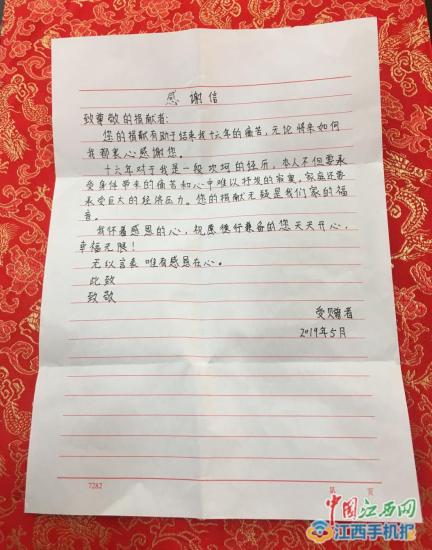 感谢信
致尊敬的捐献者:
您的捐献有助于结束我十六年的痛苦,无论将来如何
我都衷心感谢您。
十六年对于我是一段坎坷的经历,本人不但要承
受身体带来的痛苦和心中难以抒发的寂寞,家庭还要
承受巨大的经济压力。您的捐献无疑是我们家的福
音。
我怀着感恩的心,祝愿德行兼备的您天天开心,
幸福无限!
无以言表 唯有感恩在心。
此致
致敬
受赠者
2019年5月
7282
第 页
中国江西网
江西手机报